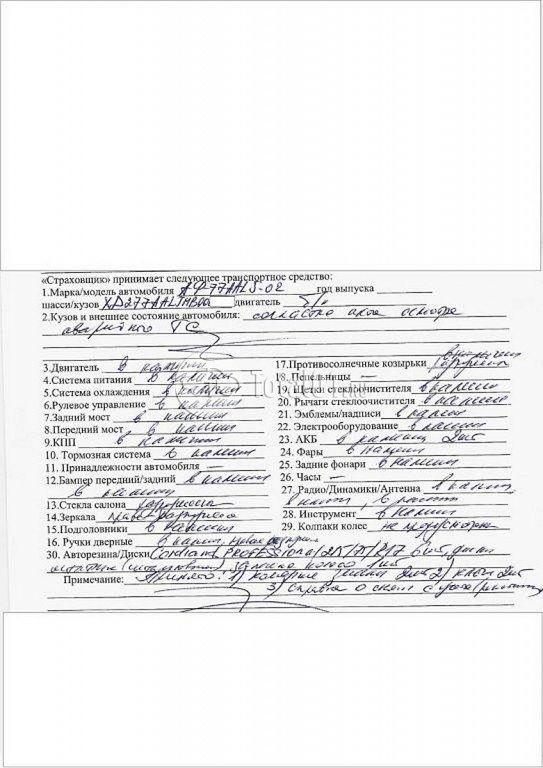 «Страховщик» принимает следующее транспортное средство:
1.Марка/модель автомобиля год выпуска
шасси/кузов двигатель б/н
2.Кузов и внешнее состояние автомобиля: согласно акта осмотра
аварийного ТС
3.Двигатель в наличии
4.Система питания в наличии
5.Система охлаждения в наличии
6.Рулевое управление в наличии
7.Задний мост в наличии
8.Передний мост в наличии
9.КПП в наличии
10. Тормозная система в наличии
11. Принадлежности автомобиля —
12.Бампер передний/задний в наличии
в наличии
13.Стекла салона
14.Зеркала
15.Подголовники в наличии
16. Ручки дверные в налич,
17.Противосолнечные козырьки в наличии
18. Пепельницы —
19. Щетки стеклоочистителя в наличии
20. Рычаги стеклоочистителя в наличии
21. Эмблемы/надписи в наличии
22. Электрооборудование в наличии
23. АКБ в наличии 2шт
24. Фары в наличии
25. Задние фонари в наличии
26. Часы —
27. Радио/Динамики/Антенна в наличии,
28. Инструмент в наличии
29. Колпаки колес не предусмотрены
30. Авторезина/Диски Cordiant Professional 6 шт, диски
запасное колесо 1шт
Примечание: Принято: 1) 2шт 2) ключи 2шт
3) справка о снятии с учета